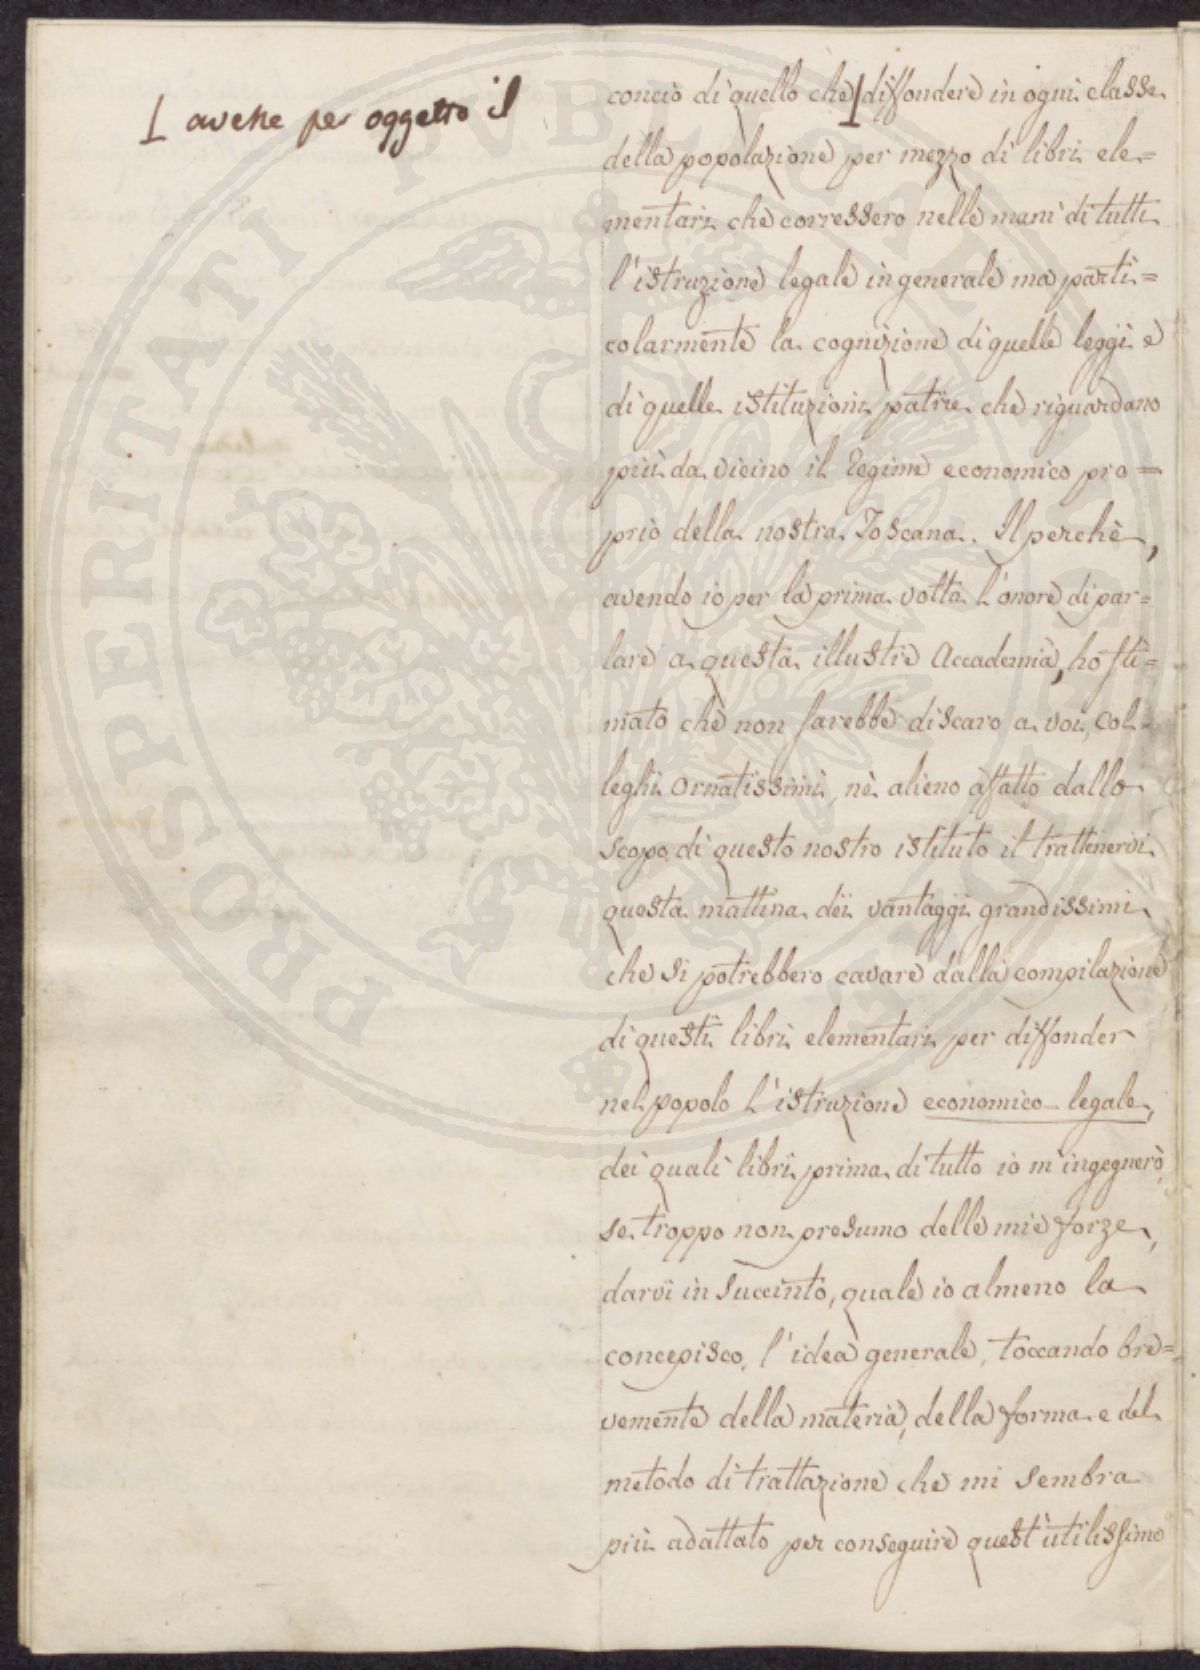 ⊥ avesse per oggetto il
concio di quello che ⊥ diffondere in ogni classe
della popolazione per mezzo di libri ele=
mentari che corressero nelle mani di tutti
l'istruzione legale in generale ma parti=
colarmente la cognizione di quelle leggi e
di quelle istituzioni patrie che riguardano
più da vicino il regime economico pro=
prio della nostra Toscana. Il perchè,
avendo io per la prima volta l'onore di par=
lare a questa illustre Accademia, ho sti=
mato che non sarebbe discaro a voi, Col=
leghi ornatissimi, nè alieno affatto dallo
scopo di questo nostro istituto il trattenervi
questa mattina dei vantaggi grandissimi
che si potrebbero cavare dalla compilazione
di questi libri elementari per diffonder
nel popolo l'istruzione economico-legale,
dei quali libri prima di tutto io m'ingegnerò,
se troppo non presumo delle mie forze,
darvi in succinto, quale io almeno la
concepisco, l'idea generale, toccando bre=
vemente della materia, della forma e del
metodo di trattazione che mi sembra
più adattato per conseguire quest'utilissimo
PROSPERITATI PUBLICAE AUGENDAE